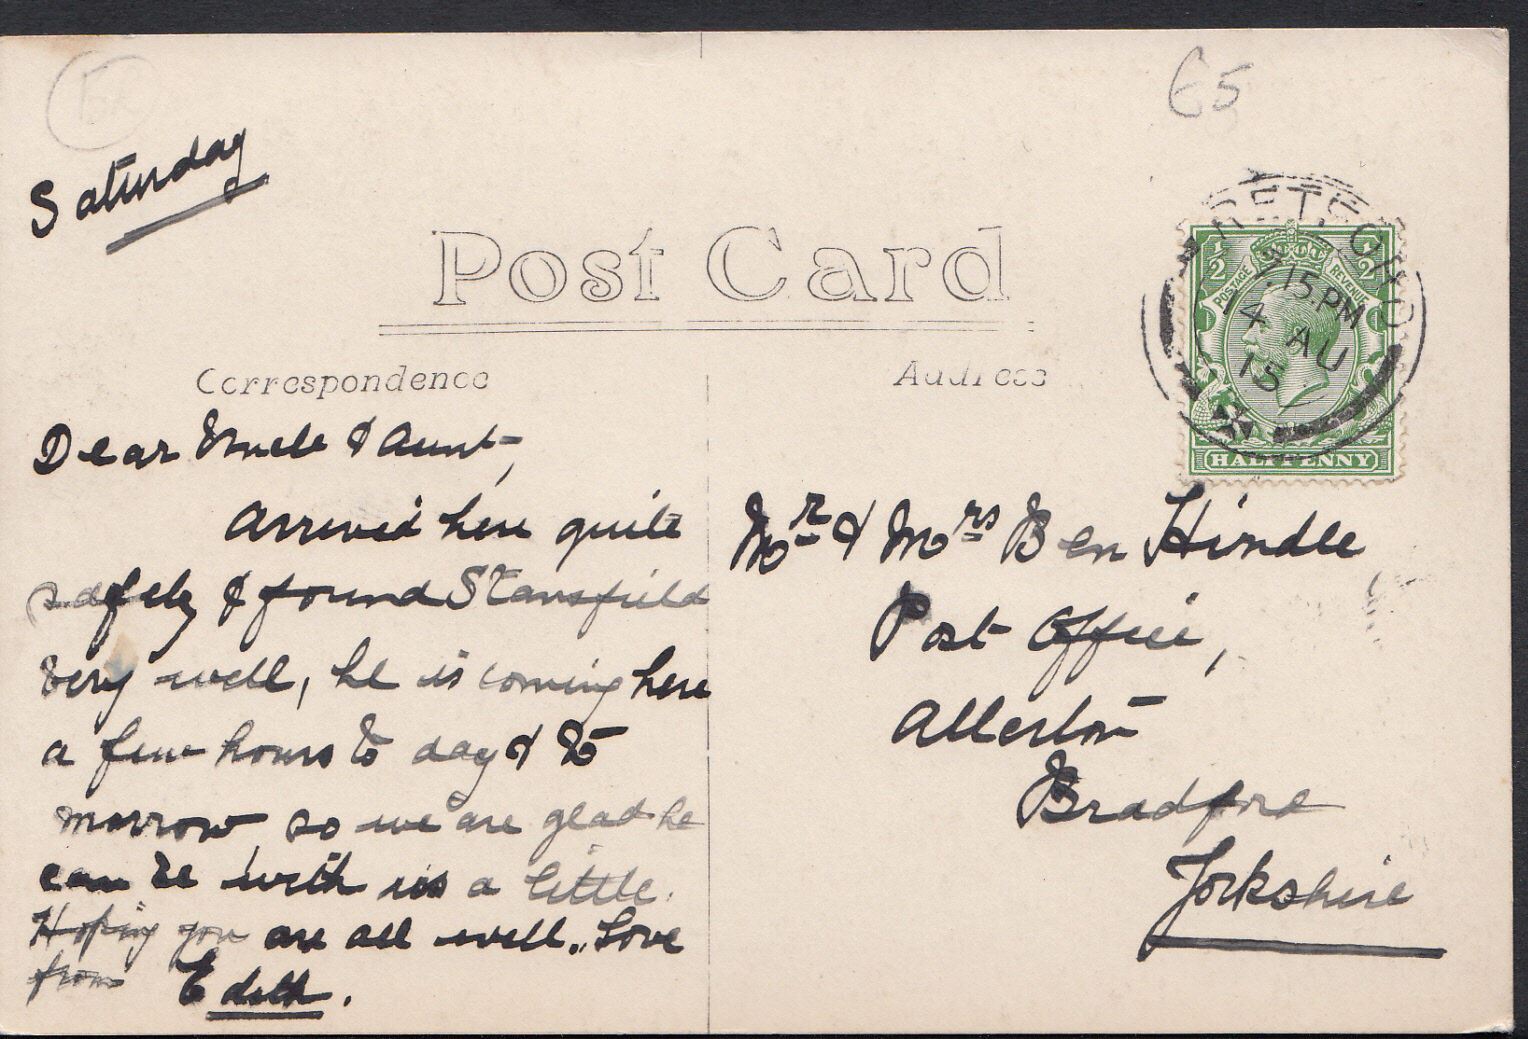 65
Saturday
Post Card
Correspondence
Address
RETFORD
.15 PM
4 AU
15
1/2 1/2
POSTAGE REVENUE
HALFPENNY
Dear Uncle & Aunt,
Arrived here quite
safely & found Stansfield
very well, he is coming here
a few hours to day & to
morrow so we are glad he
can be with us a little.
Hoping you are all well. Love
from Edith.
Mr & Mrs Ben Hindle
Post Office,
Allerton
Bradford
Yorkshire